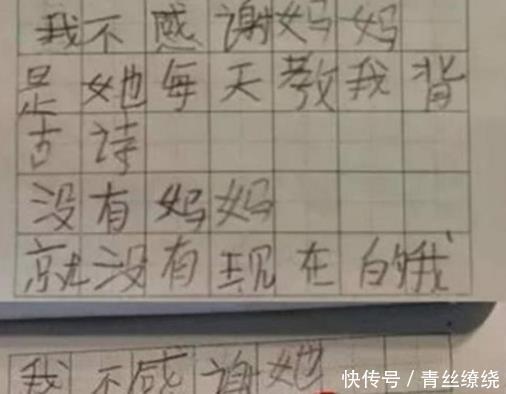 我不感谢妈妈
是她每天教我背
古诗
没有妈妈
就没有现在的我
我不感谢她
快传号/青丝缭绕